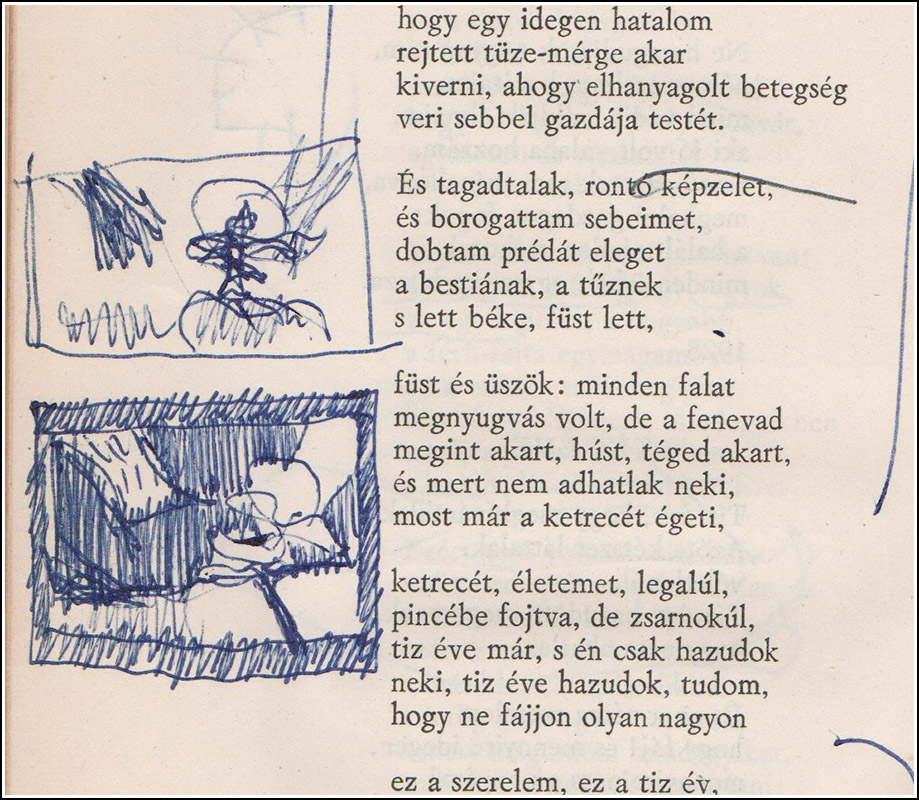 hogy egy idegen hatalom
rejtett tüze-mérge akar
kiverni, ahogy elhanyagolt betegség
veri sebbel gazdája testét.
És tagadtalak, rontó képzelet,
és borogattam sebeimet,
dobtam prédát eleget
a bestiának, a tűznek
s lett béke, füst lett,
füst és üszök: minden falat
megnyugvás volt, de a fenevad
megint akart, húst, téged akart,
és mert nem adhatlak neki,
most már a ketrecét égeti,
ketrecét, életemet, legalúl,
pincébe fojtva, de zsarnokúl,
tiz éve már, s én csak hazudok
neki, tiz éve hazudok, tudom,
hogy ne fájjon olyan nagyon
ez a szerelem, ez a tiz év,